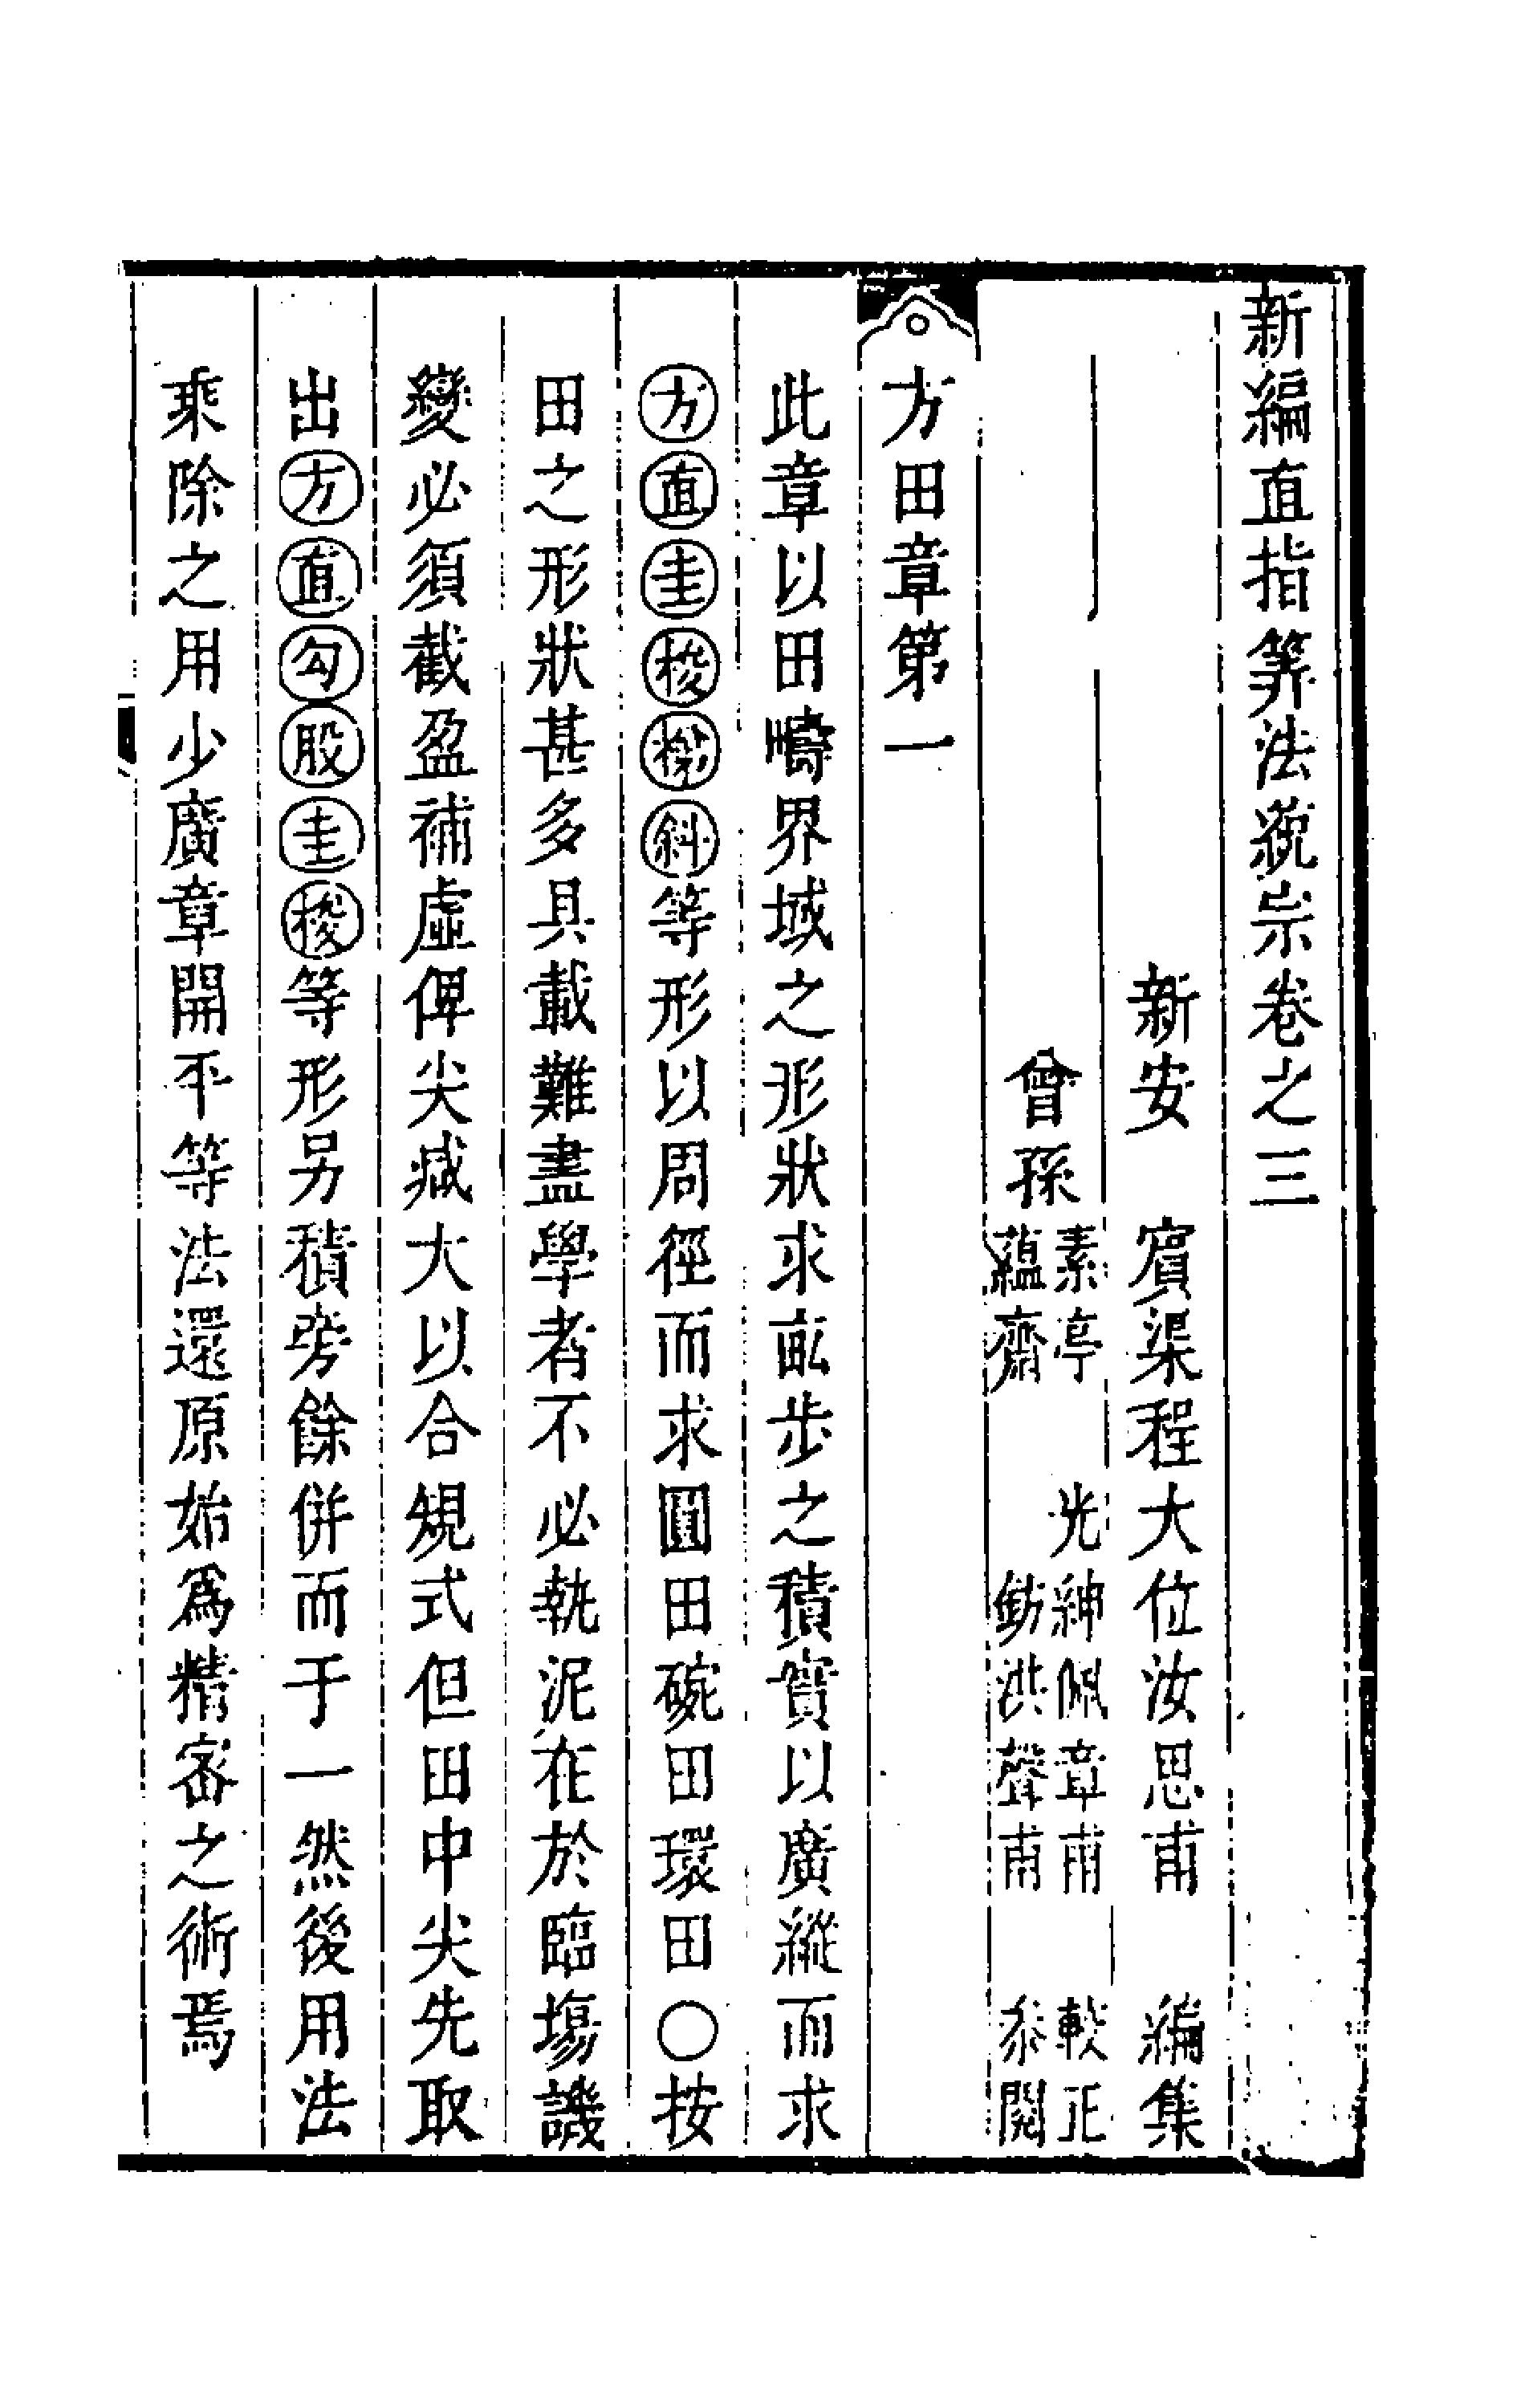 新編直指筭法綂宗卷之三
新安 賓渠程大位汝思甫 編集
曾孫 素亭 光紳佩章甫 較正
蘊齋 鈁洪聲甫 叅閱
方田章第一
此章以田疇界域之形狀求畝步之積實以廣縱而求
方直圭梭梯斜等形以周徑而求圓田碗田環田〇按
田之形狀甚多具載難盡學者不必執泥在於臨塲譏
變必須截盈補虛俾尖減大以合規式但田中尖先取
出方直勾股圭梭等形另積旁餘併而于一然後用法
乘除之用少廣章開平等法還原始爲精密之術焉